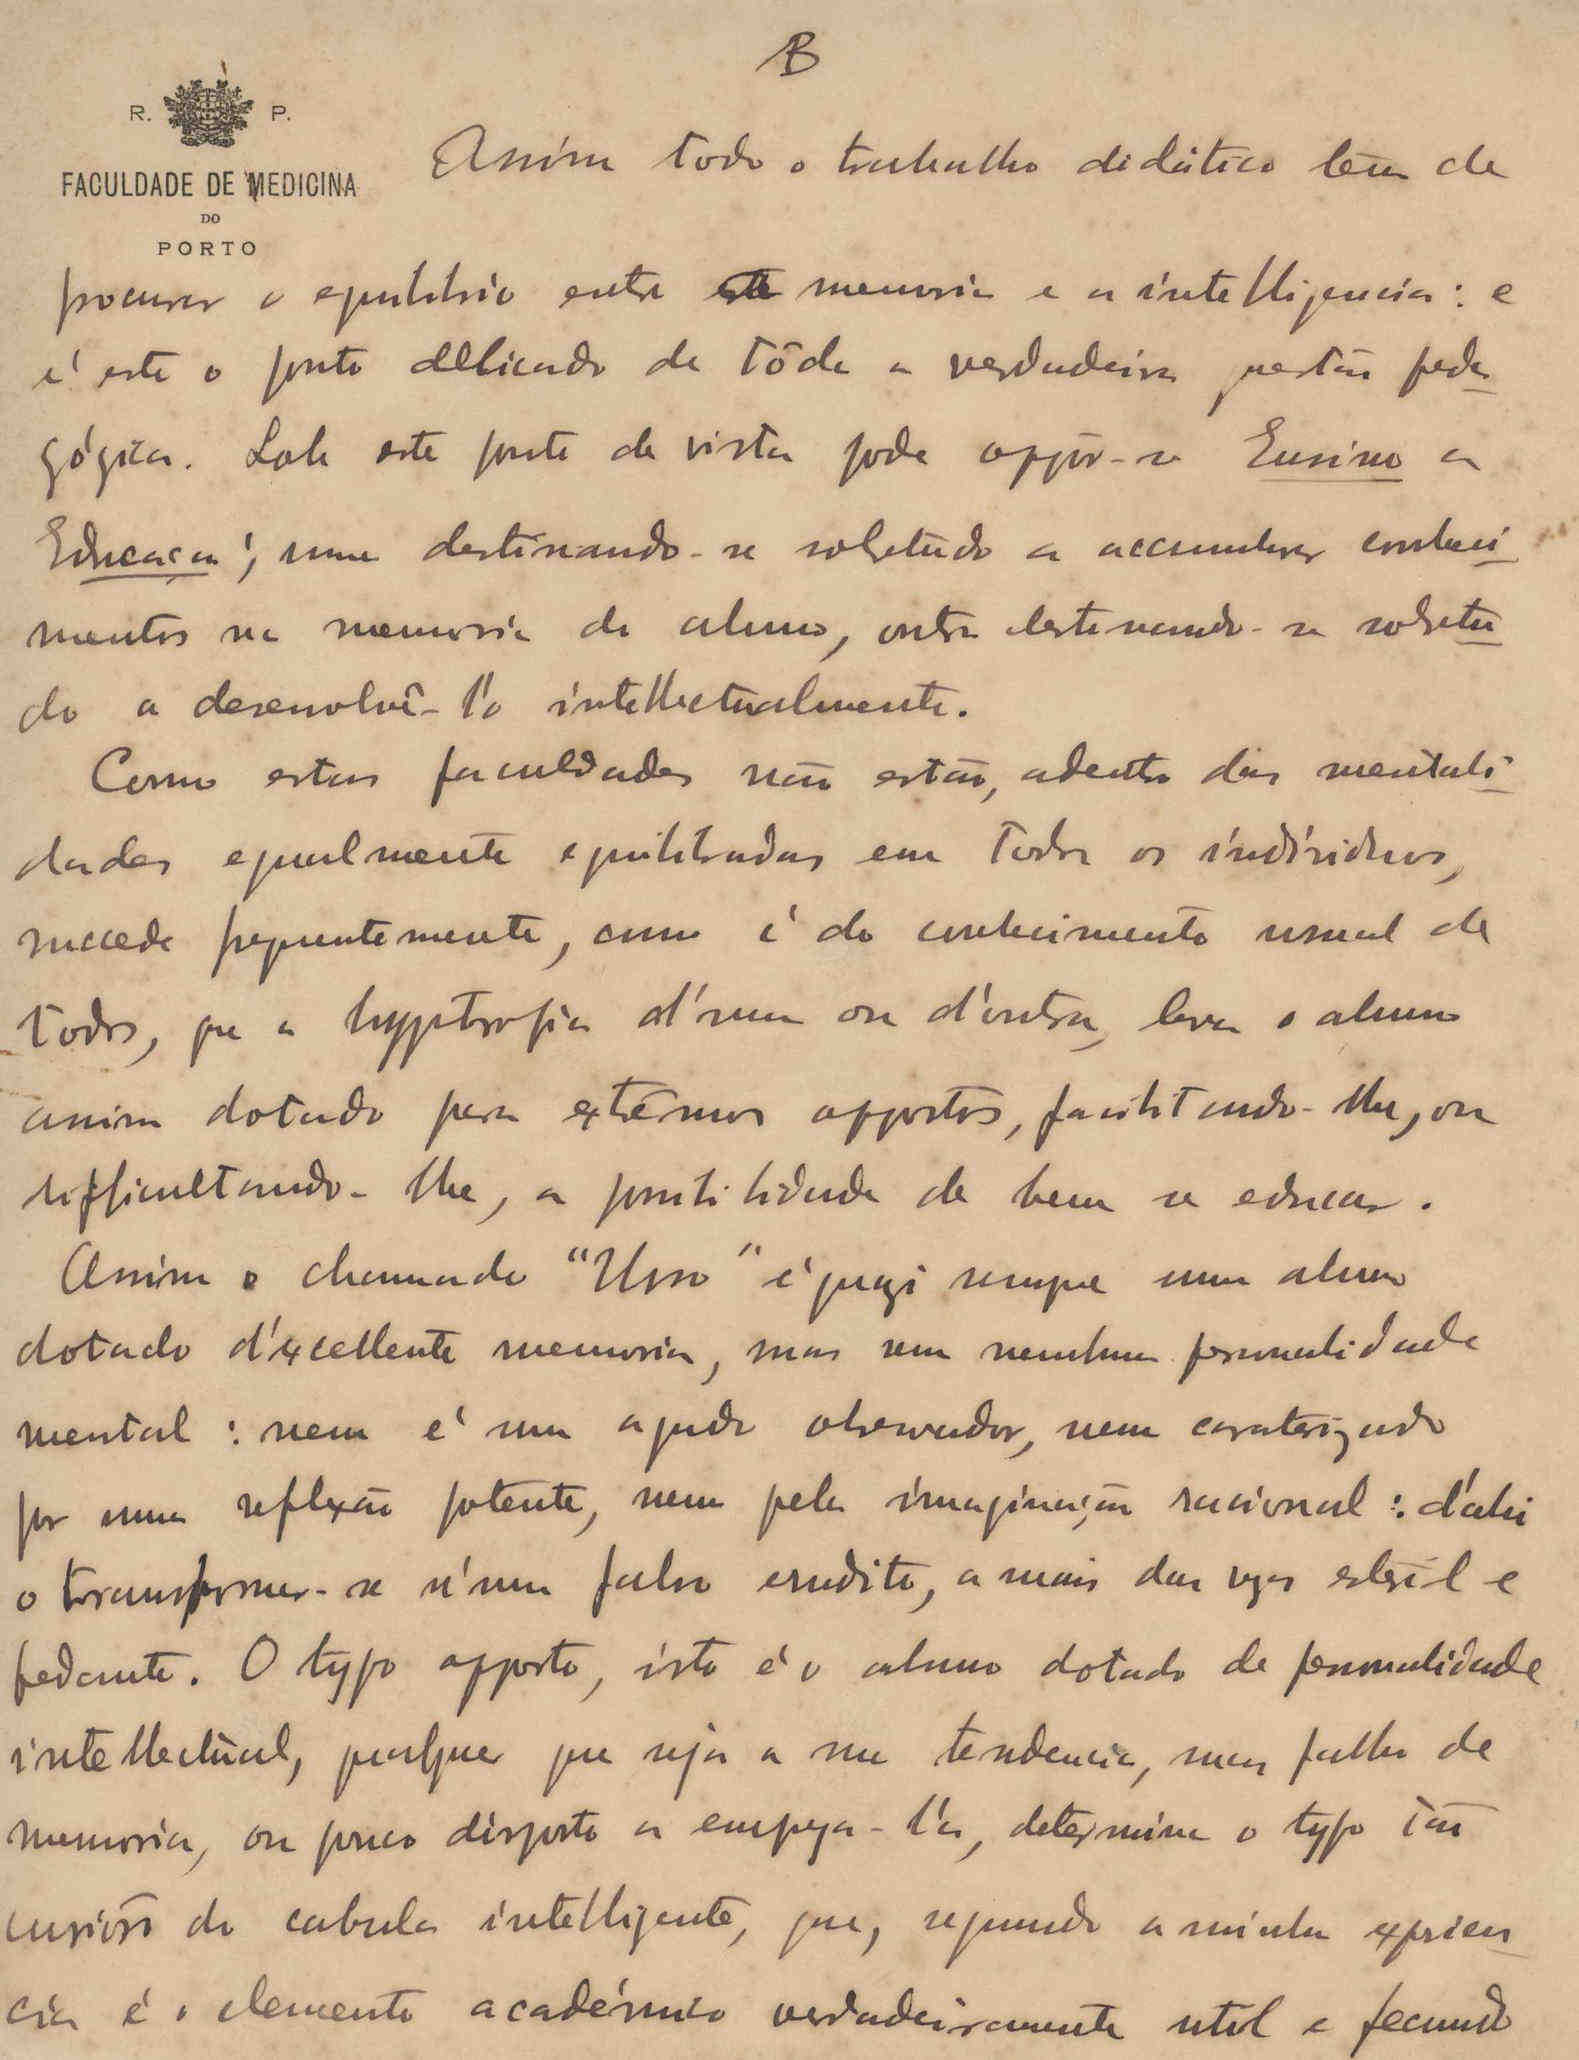 B
R. P.
FACULDADE DE MEDICINA
DO
PORTO
Assim todo o trabalho didático tem de
procurar o equilibrio entre a memoria e a intelligencia: e
é este o ponto delicado de tôda a verdadeira questão peda
gógica. Sob este ponto de vista pode oppôr-se Ensino a
Educação; um destinando-se sobretudo a accumular conheci
mentos na memoria do alumno, outro destinando-se sobretu
do a desenvolvê-l'o intellectualmente.
Como estas faculdades não estão, adentro das mentali
dades egualmente equilibradas em todos os individuos,
succede frequentemente, como é do conhecimento usual de
todos, que a hypertrofia d'uma ou d'outra, leva o alumno
assim dotado para extrêmos oppostos, facilitando-lhe, ou
difficultando-lhe, a possibilidade de bem se educar.
Assim o chamado "Urso" é quazi sempre um alumno
dotado d'excellente memoria, mas sem nenhuma personalidade
mental: nem é um agudo observador, nem caraterizado
por uma reflexão potente, nem pela imaginação racional: d'ahi
o transformar-se n'um falso erudito, a mais das vezes esteril e
pedante. O typo opposto, isto é o alumno dotado de personalidade
intellectual, qualquer que seja a sua tendencia, mas falho de
memoria, ou pouco disposto a empega-l'a, determina o typo tão
curiôso do cabula intelligente, que, segundo a minha exprien
cia é o elemento académico verdadeiramente util e fecundo